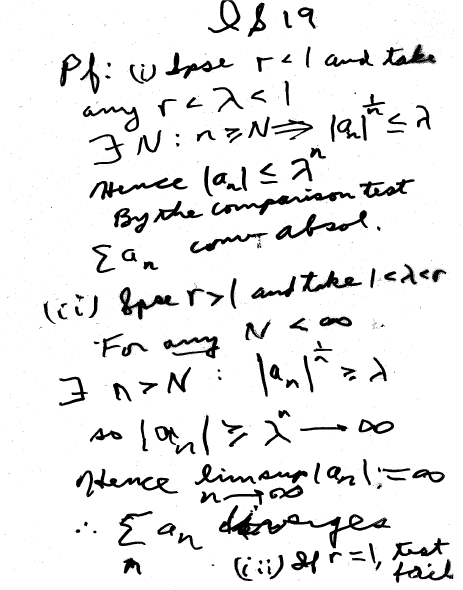 IS 19
Pf: (i) Spse r < 1 and take
any r < λ < 1
∃ N : n ≥ N ⟹ |aₙ|^{1/n} ≤ λ
Hence |aₙ| ≤ λⁿ
By the comparison test
Σ aₙ conv absol.
(ii) Spse r > 1 and take 1 < λ < r
For any N < ∞
∃ n > N : |aₙ|^{1/n} ≥ λ
so |aₙ| ≥ λⁿ → ∞
Hence limsup |aₙ| = ∞
n→∞
∴ Σ aₙ diverges
n
(iii) If r = 1, test
fails